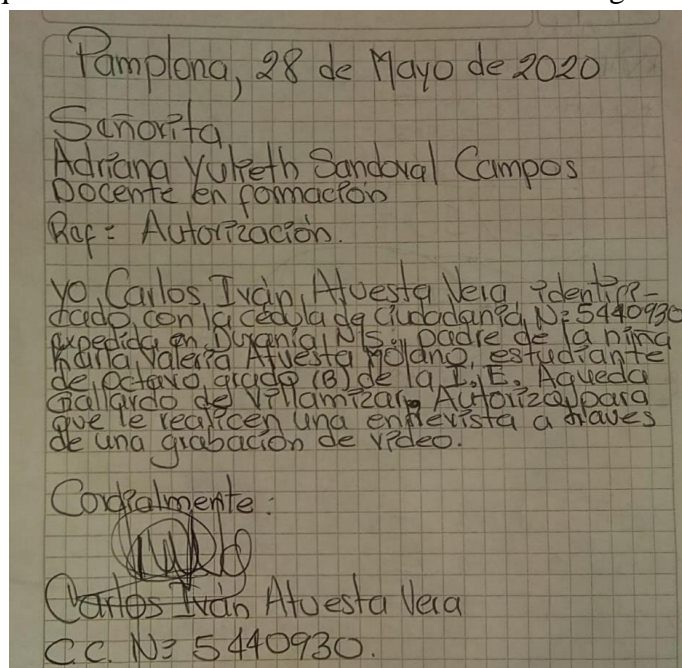 Pamplona, 28 de Mayo de 2020
Señorita
Adriana Yulieth Sandoval Campos
Docente en formación
Ref: Autorización.
yo, Carlos, Iván, Atuesta Vera identifi-
cado con la cédula de ciudadanía, Nº 5440930
expedida en Durania, N/S., padre de la niña
Karla, Valeria Atuesta Molano, estudiante
de octavo, grado (B) de la I.E. Agueda
Gallardo de Villamizar, Autorizo, para
que le realicen una entrevista a traves
de una grabación de video.
Cordialmente:
Carlos Iván Atuesta Vera
C.C. Nº 5440930.